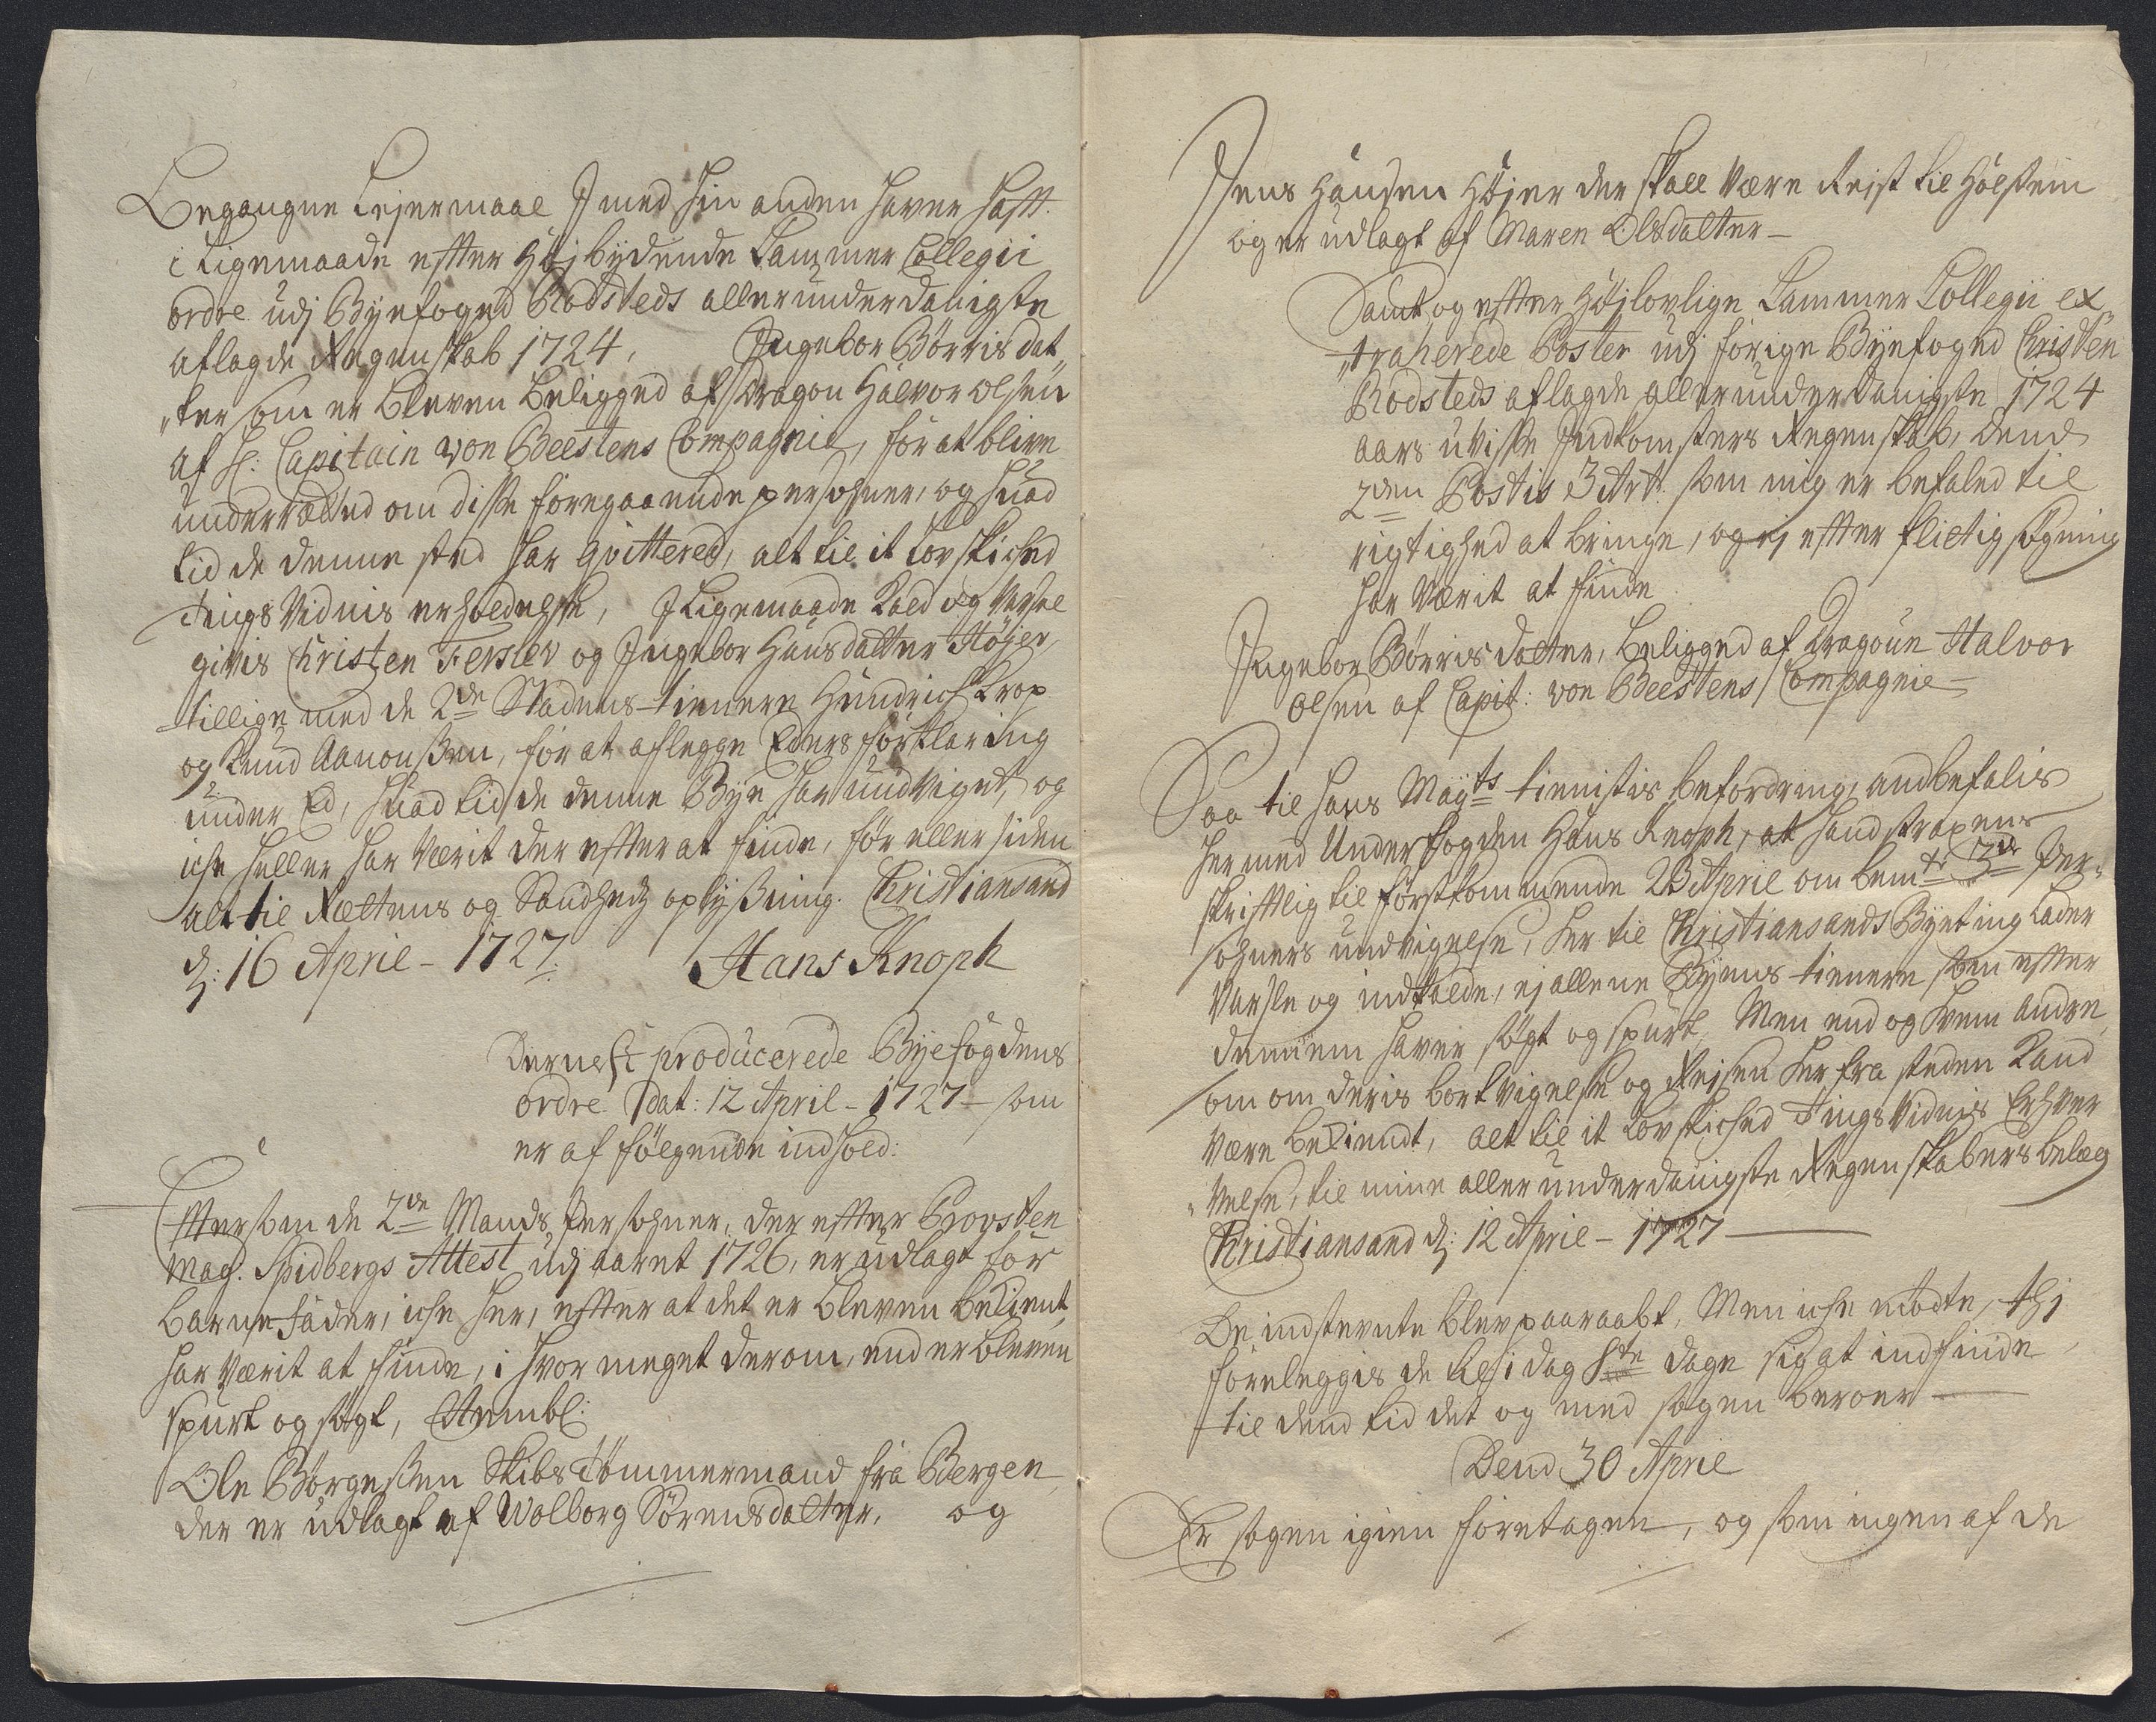 Begangne Lejermaal I med hin anden haver hafft.
i Ligemaade effter Højbydende Cammer Collegii
ordre udj Byefoged Rodsteds allerunderdanigste
aflagde Regenskab 1724, Ingebor Børris dat„
„ter som er bleven beligged af Dragon Halvor Olsen
af H: Capitain von Beestens Compagnie, for at blive
underrætted om disse foregaaende persohner, og huad
tid de denne sted har qvittered, alt til it lovskicked
Tings Vidnis erholdelse, I Ligemaade Kald og Varsel
givis Christen Ferslev og Ingebor Hansdatter Højer,
tillige med de 2de Stadens tienere Hendrich Krop
og Knud Aanonssen, for at aflegge Eders forklaring
under Ed, huad tid de denne Bye har undviget, og
iche heller har Værit der effter at finde, før eller siden
alt til Rættens og Sandheds oplyssning. Christiansand
d: 16 April - 1727. Hans Knoph
Dernest producerede Byefogdens
ordre dat: 12 April - 1727 - som
er af følgende indhold:
Efftersom de 2de Mands Persohner, der effter Provsten
Mag. Spidbergs Attest udj aaret 1726, er udlagt for
barnefader, iche her, effter at det er bleven bekient,
har Værit at finde, i hvor meget derom, end er bleven
spurt og søgt, Nembl:
Ole Børgessen Skibs Tømmermand fra Bergen
der er udlagt af Wolborg Sørensdatter, og
Jens Hansen Højer der skall Være Reist til Holstein
og er udlagt af Maren Olsdatter -
Samt og effter Højlovlige Cammer Collegii ex„
„traherede Poster udj forige Byefoged Christen
Rodsteds aflagde allerunderdanigste 1724
aars uvisse Indkomsters Regenskab, dend
2den Postis 3 Art: som mig er befaled til
rigtighed at bringe, og ej effter flietig søgning
har Værit at finde
Ingebor Børrisdatter, beligged af Dragoun Halvor
Olsen af Capit: von Beestens Compagnie -
Saa til hans Mayts tienistis befordring, andbefalis
hermed Underfogden Hans Knoph, at hand straxens
skrifftlig til førstkommende 23 April om bemte 3de Per„
sohners undvigelse, her til Christiansands Byeting lader
Varsle og indkalde, ej allene Byens tienere som effter
dennem haver søgt og spurt, Men end og hvem andre
som om deris bortvigelse og Reisen her fra steden Kand
Være bekiendt, alt til it lovskicked Tings Vidnis Erhver
„velse, til mine allerunderdanigste Regenskabers belæg
Christiansand d: 12 April - 1727
De indstevnte blev paaraabt, Men iche mødte, thi
foreleggis de til i dag 8te dage sig at indfinde
til dend tid det og med sagen beroer -
Dend 30 April
Er sagen igien foretagen, og som ingen af de